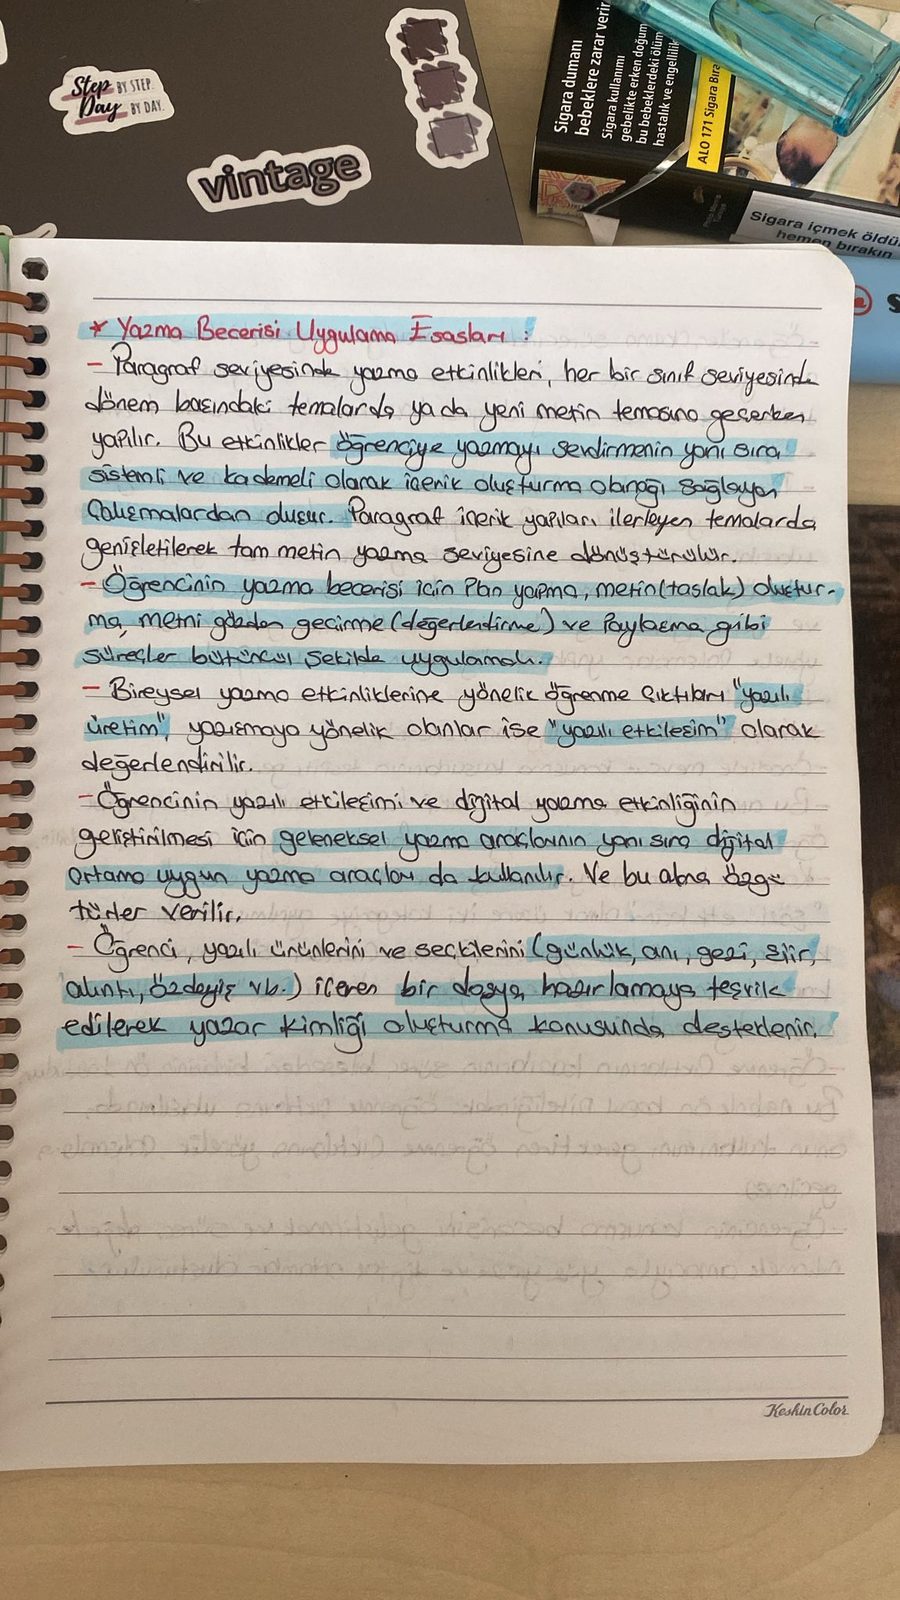 Step BY STEP.
Day BY DAY.
vintage
Sigara dumanı
bebeklere zarar verir
Sigara kullanımı
gebelikte erken doğum
bu bebeklerdeki ölüm
hastalık ve engellilik
ALO 171 Sigara Bıra
Sigara içmek öldü
hemen bırakın
S
* Yazma Becerisi Uygulama Esasları :
- Paragraf seviyesinde yazma etkinlikleri, her bir sınıf seviyesinde
dönem başındaki temalarda ya da yeni metin temasına geçerken
yapılır. Bu etkinlikler öğrenciye yazmayı sevdirmenin yanı sıra
sistemli ve kademeli olarak içerik oluşturma olanağı sağlayan
Çalışmalardan oluşur. Paragraf içerik yapıları ilerleyen temalarda
genişletilerek tam metin yazma seviyesine dönüştürülür.
- Öğrencinin yazma becerisi için Plan yapma, metin (taslak) oluştur-
ma, metni gözden geçirme (değerlendirme) ve Paylaşma gibi
süreçler bütüncül şekilde uygulamalı.
- Bireysel yazma etkinliklerine yönelik öğrenme çıktıları "yazılı
üretim", yazışmaya yönelik olanlar ise "yazılı etkileşim" olarak
değerlendirilir.
- Öğrencinin yazılı etkileşimi ve dijital yazma etkinliğinin
geliştirilmesi için geleneksel yazma araçlarının yanı sıra dijital
ortama uygun yazma araçları da kullanılır. Ve bu alana özgü
türler verilir.
- Öğrenci, yazılı ürünlerini ve seçkilerini (günlük, anı, gezi, şiir,
alıntı, özdeyiş vb.) içeren bir dosya hazırlamaya teşvik
edilerek yazar kimliği oluşturma konusunda desteklenir.
KeskinColor